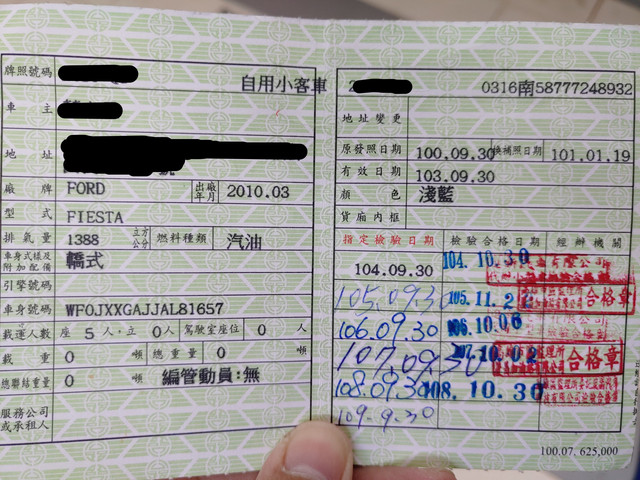 牌照號碼
自用小客車
車主
地址
廠牌 FORD 出廠年月 2010.03
型式 FIESTA
排氣量 1388 立方公分 燃料種類 汽油
車身式樣及附加配備 轎式
引擎號碼
車身號碼 WF0JXXGAJJAL81657
載運人數 座 5 人,立 0人 駕駛室座位 0 人
載重 0 噸 總重量 0 噸
總聯結重量 0 噸 編管動員:無
服務公司或承租人
0316南58777248932
地址變更
原發照日期 100.09.30 換補照日期 101.01.19
有效日期 103.09.30
顏色 淺藍
貨廂內框
指定檢驗日期 檢驗合格日期 經辦機關
104.09.30 104.10.30
105.09.30 105.11.22 合格章
106.09.30 106.10.06
107.09.30 107.10.02 合格章
108.09.30 108.10.30
109-9.30
100.07. 625,000